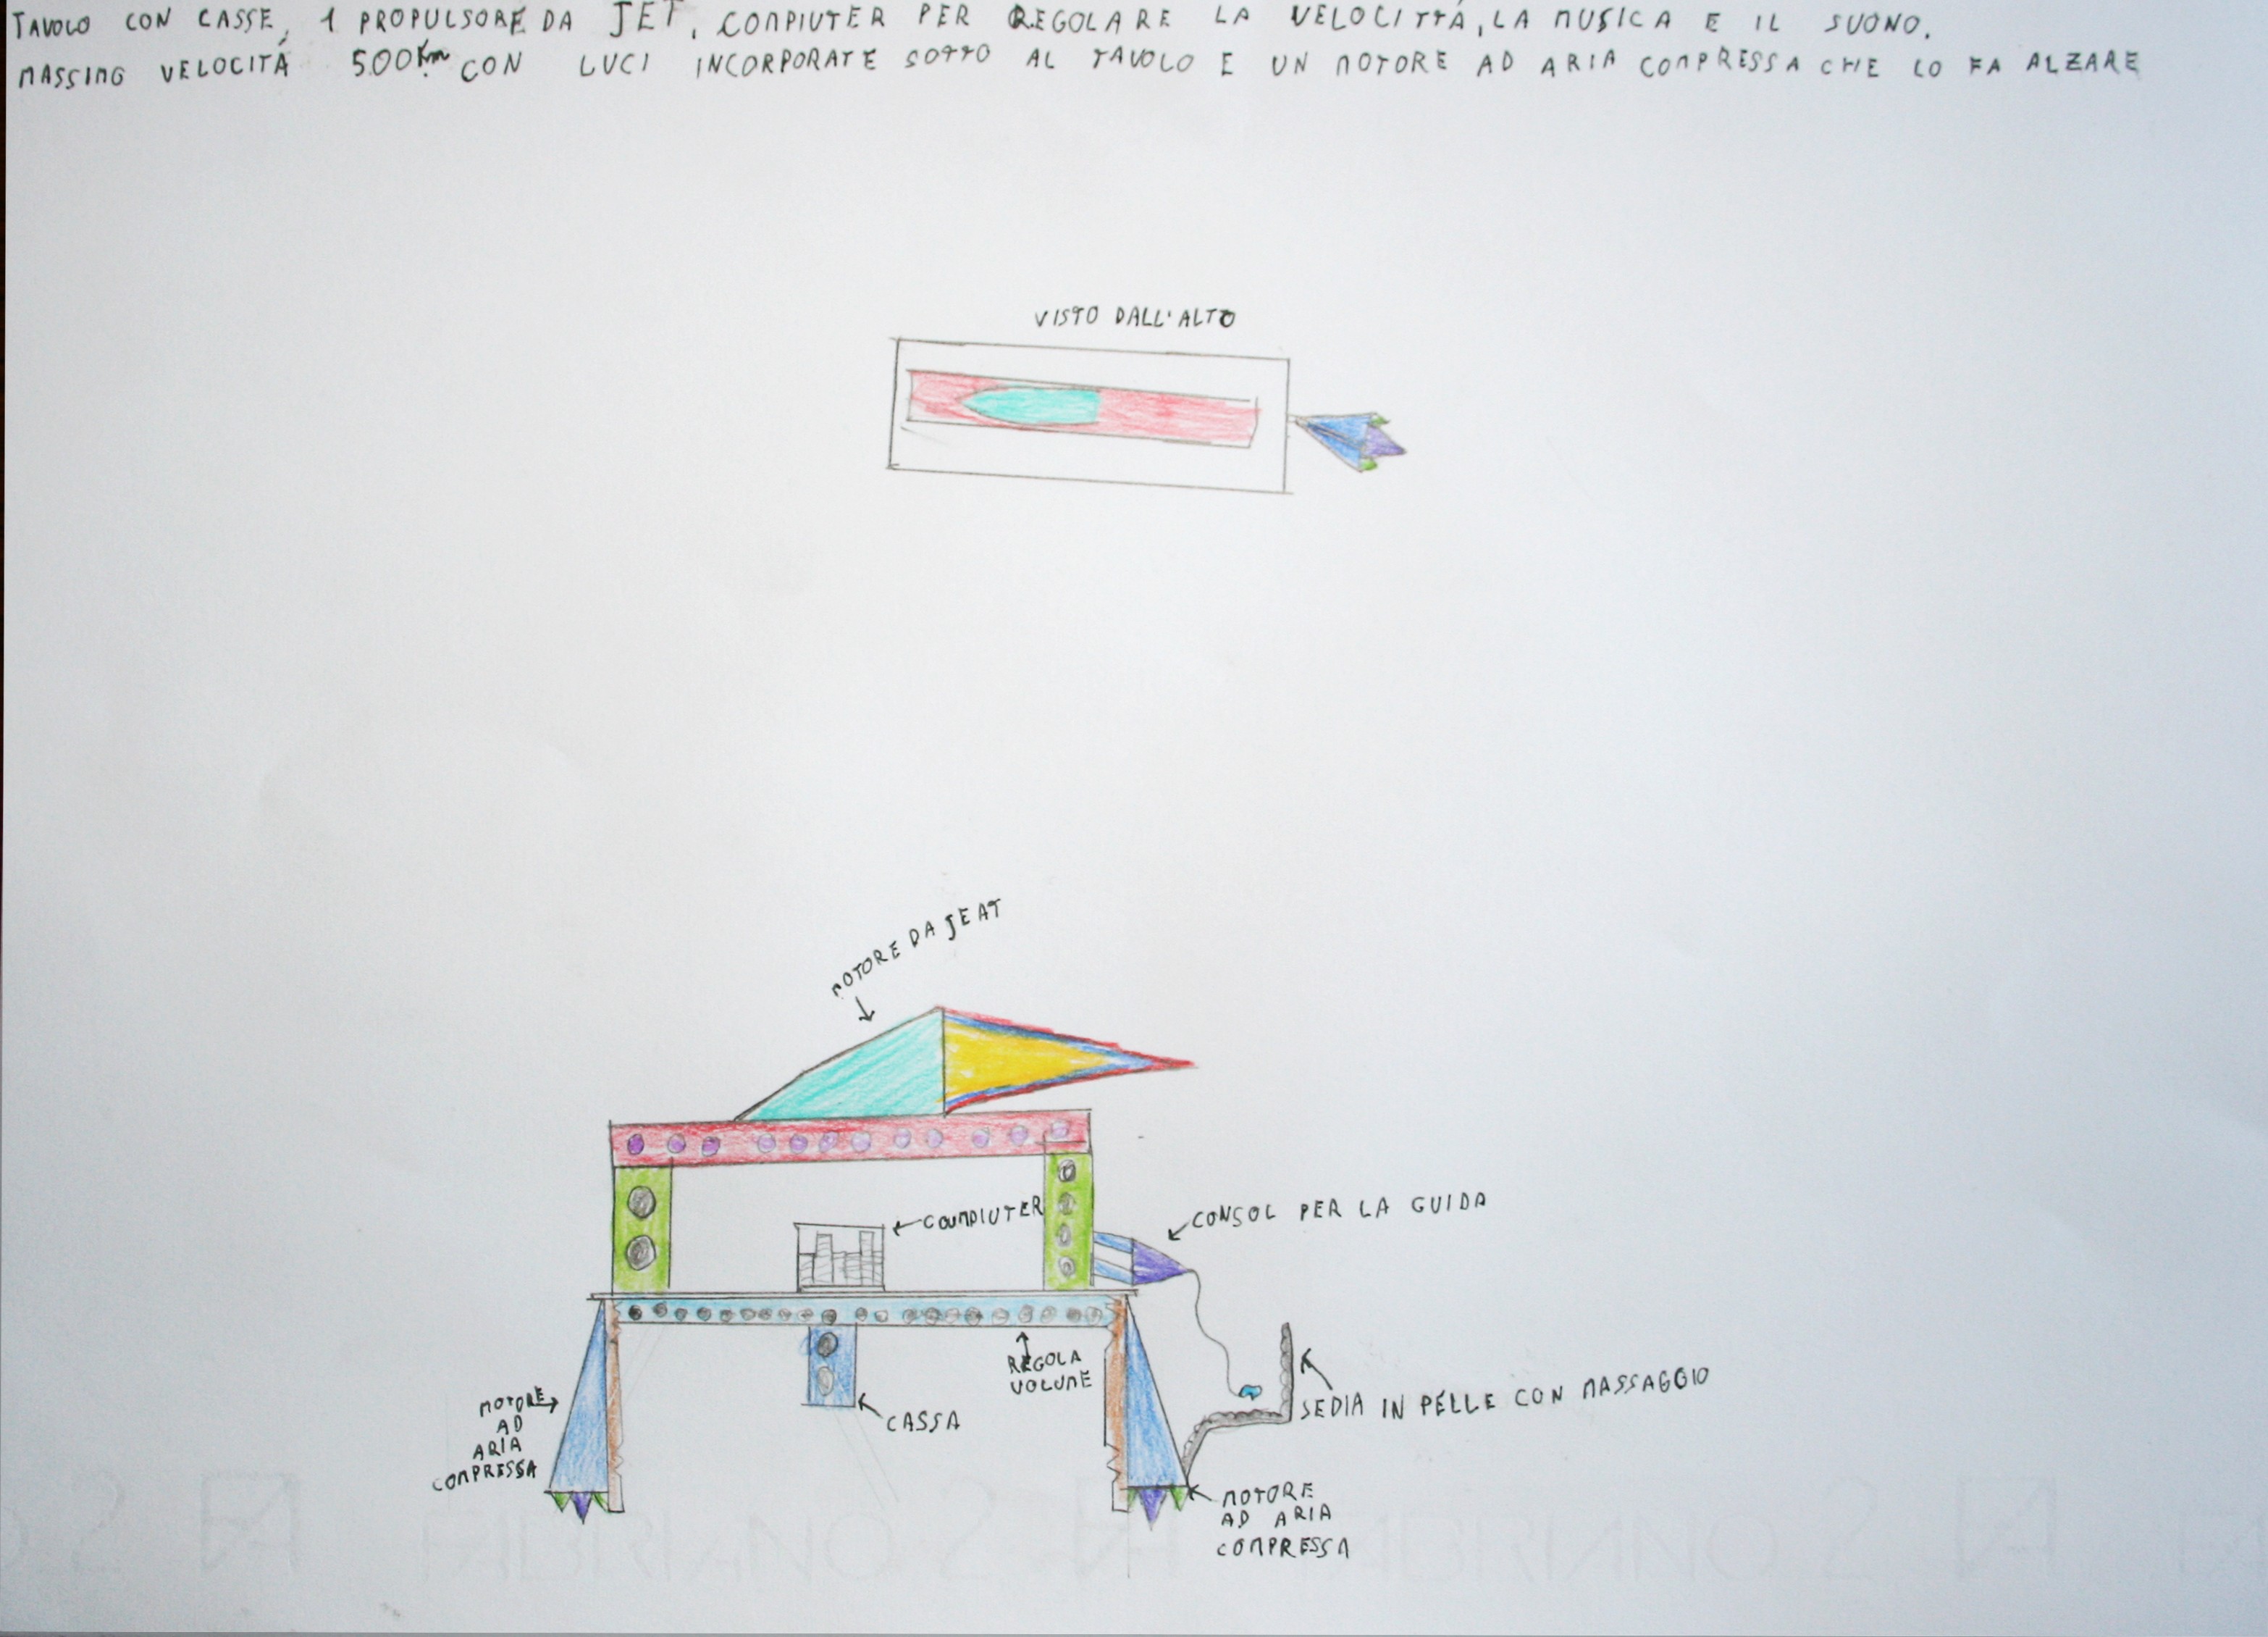 TAVOLO CON CASSE, 1 PROPULSORE DA JET, COMPIUTER PER REGOLARE LA VELOCITTÁ, LA MUSICA E IL SUONO.
MASSIMO VELOCITÁ 500 Km CON LUCI INCORPORATE SOTTO AL TAVOLO E UN MOTORE AD ARIA COMPRESSA CHE LO FA ALZARE
VISTO DALL'ALTO
MOTORE DA JEAT
COUMPIUTER
CONSOL PER LA GUIDA
REGOLA
VOLUME
CASSA
SEDIA IN PÉLLE CON MASSAGGIO
MOTORE
AD
ARIA
COMPRESSA
MOTORE
AD ARIA
COMPRESSA